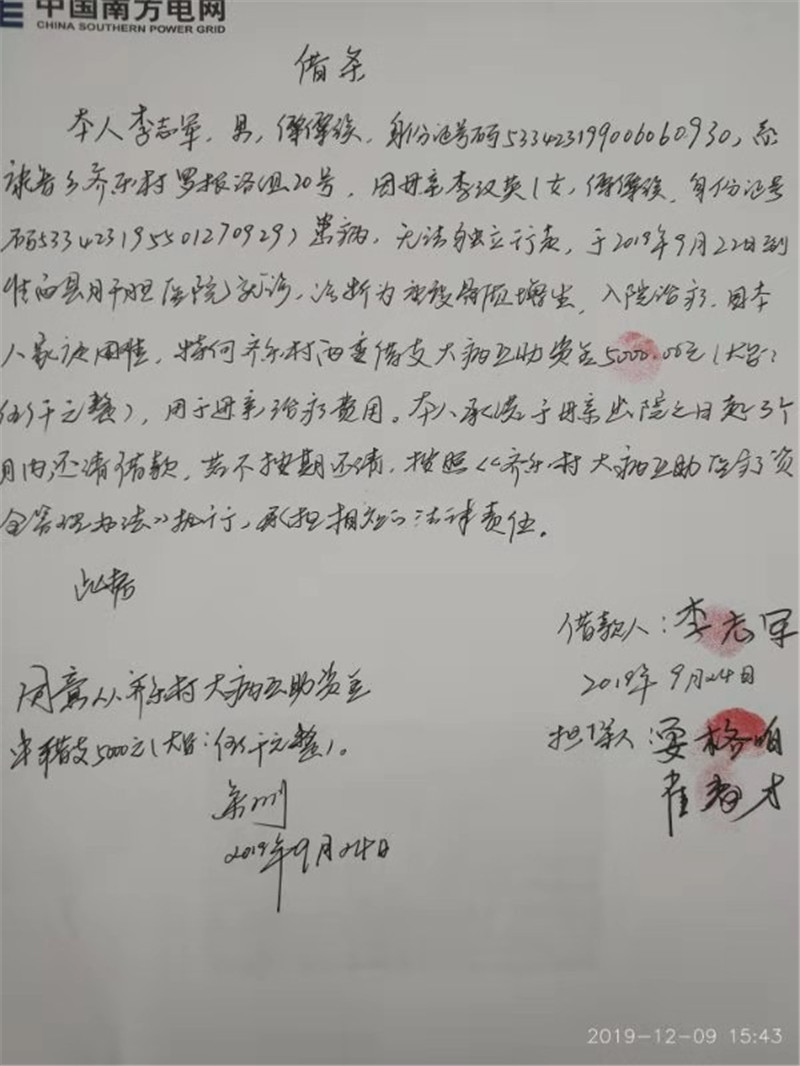 中国南方电网
CHINA SOUTHERN POWER GRID
借条
本人李志军，男，傈僳族，身份证号码533423199006060930，系
康普乡齐乐村罗报洛组20号，因母亲李汉英（女，傈僳族，身份证号
码533423195501270929）患病，无法独立行走，于2019年9月22日到
维西县肝胆医院就诊，诊断为 骨质增生，入院治疗，因本
人家庭困难，特向齐乐村两委借支大病互助资金5000.00元（大写：
伍仟元整），用于母亲治疗费用。本人承诺于母亲出院之日起3个
月内还清借款，若不按期还清，按照《齐乐村大病互助医疗资
金管理办法》执行，承担相应的法律责任。
此据
借款人：李志军
2019年9月24日
担保人：
同意从齐乐村大病互助资金
中借支5000元（大写：伍仟元整）。
2019年9月24日
2019-12-09 15:43